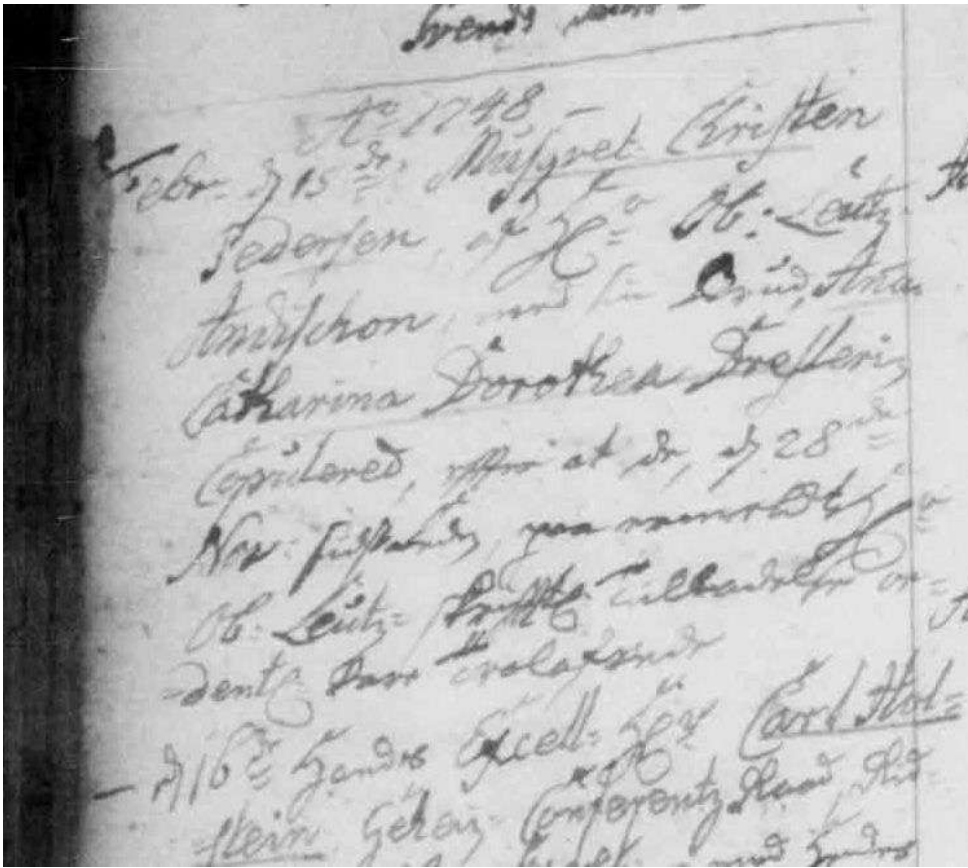 Svends
Ao 1748 -
Febr. d 15de. Musqvet. Christen
Pedersen, af Hr Ob: Leutz.
Amischon, med sin Brud, Ana
Catharina Dorothea Dresleri,
Copulered, efter at de, d 28de
Nov: sidstleden, paa
Ob: Leutz= skriftl. Tilladelse or=
dentl. vare trolofvede
- d 16de Handes Excell: Hr Carl Hol=
stein Geheim Conferentz Raad, Rid=
med Handes